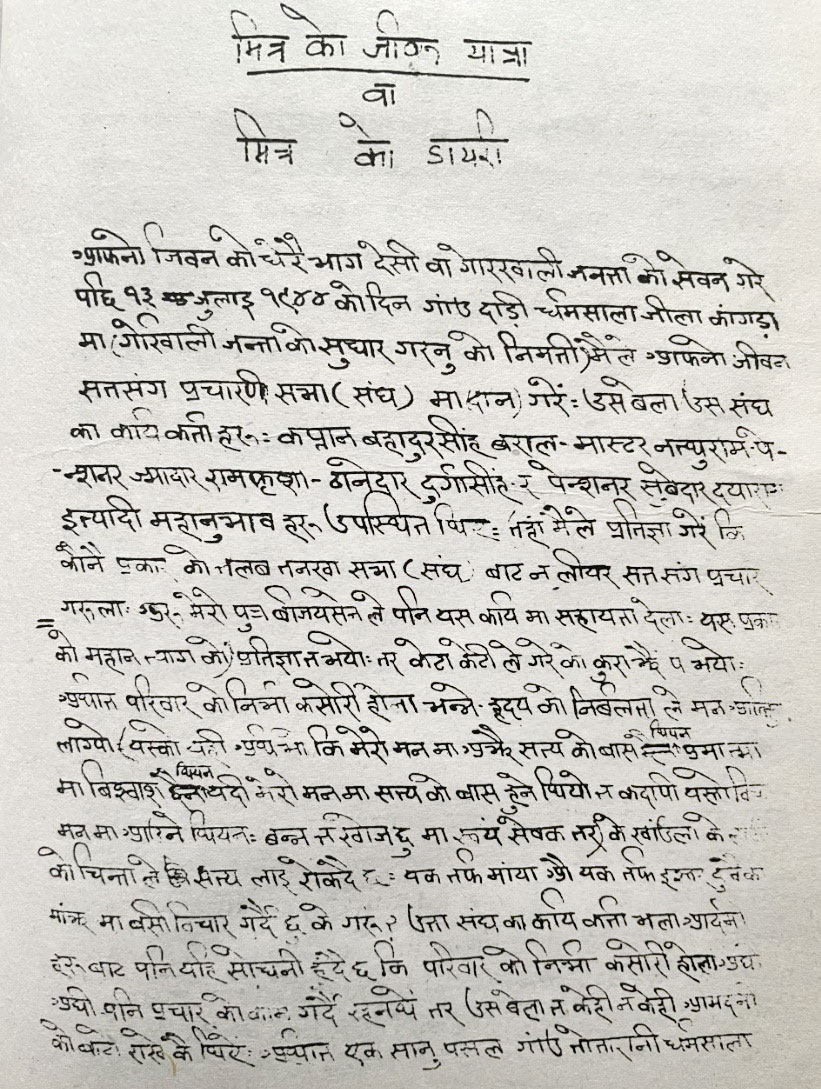 मित्र को जीवन यात्रा
वा
मित्र को डायरी
आफनो जिवन को धेरै भाग देसी वा गोरखाली जनता को सेवन गरे
पछि १३ जुलाइ १९४४ को दिन गांउ दाड़ी र्धमसाला जीला कांगड़ा
मा (गोर्खाली जन्ता को सुधार गरनु को निमती) मैले आफनो जीवन
सतसंग प्रचारणी सभा (संघ) मा (दान) गरें: उसेबला उस संघ
का कार्य कर्ता हरू: कप्तान बहादुरसींह बराल - मास्टर नत्थुराम - पे-
-न्शनर ज्मादार रामकृश्ना - ठानेदार दुर्गासींह - र पेन्शनर सुबेदार दयाराम
इत्यादी महानुभाव हरू उपस्थित थिए: तहां मैले प्रतिज्ञा गरें कि
कौनै प्रकार को तलब तनखा सभा (संघ) बाट न लीयर सत संग प्रचार
गरूला: अरू मेरो पुत्र बीजयसेन ले पनि यस कार्य मा सहायता देला: यस प्रकार
को महान त्याग को प्रतिज्ञा त भयो: तर केटा केटी ले गरे को कुरा झैं प भयो:
अर्थात परिवार को निर्भा कसोरी होला भन्ने हृदय को निर्बलता ले मन
लाग्यो (यस्को यही अर्थ भो कि मेरो मन मा अझै सत्य को बास थियन प्रमात्मा
मा बिश्वाश थियन यदी मेरो मन मा सत्य को बास हुने थियो त कदापी यस्तो
मन मा आउने थियन: बन्न त खोजदछु मा स्वयं सेवक तर के खांउला के
को चिन्ता ले सत्य लाइ रोकदै छ: यक तर्फ मांया औ यक तर्फ इनै दुवैका
मांझ मा बसी विचार गर्दै छु के गरू? उता संघ का कार्य कर्ता भला आर्दमी
हरू बाट पनि यहि सोचनी हुदैछ कि परिवार को निर्भा कसोरी होला
अघी पनि प्रचार को काम गर्दै रहन्थें तर उस बेला त केही न केही आमदनी
को बाटो राखे कै थिएं: अर्थात एक सानु पसल गांउ तोतारानी र्धमसाला